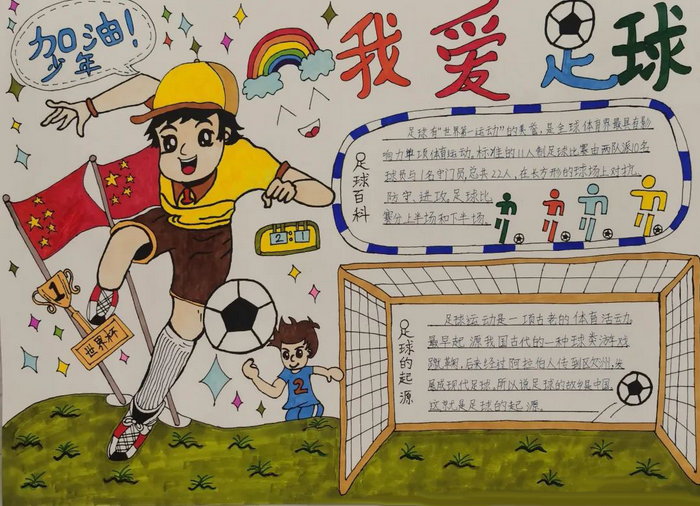 加油!
少年
我爱足球
足球百科
足球有"世界第一运动"的美誉,是全球体育界最具有影
响力单项体育运动。标准的11人制足球比赛由两队派10名
球员与1名守门员,总共22人,在长方形的球场上对抗、
防守、进攻。足球比
赛分上半场和下半场。
2 1
1
世界杯
2
足球的起源
足球运动是一项古老的体育活动,
最早起源我国古代的一种球类游戏
蹴鞠,后来经过阿拉伯人传到欧洲,发
展成现代足球。所以说足球的故乡是中国,
这就是足球的起源。